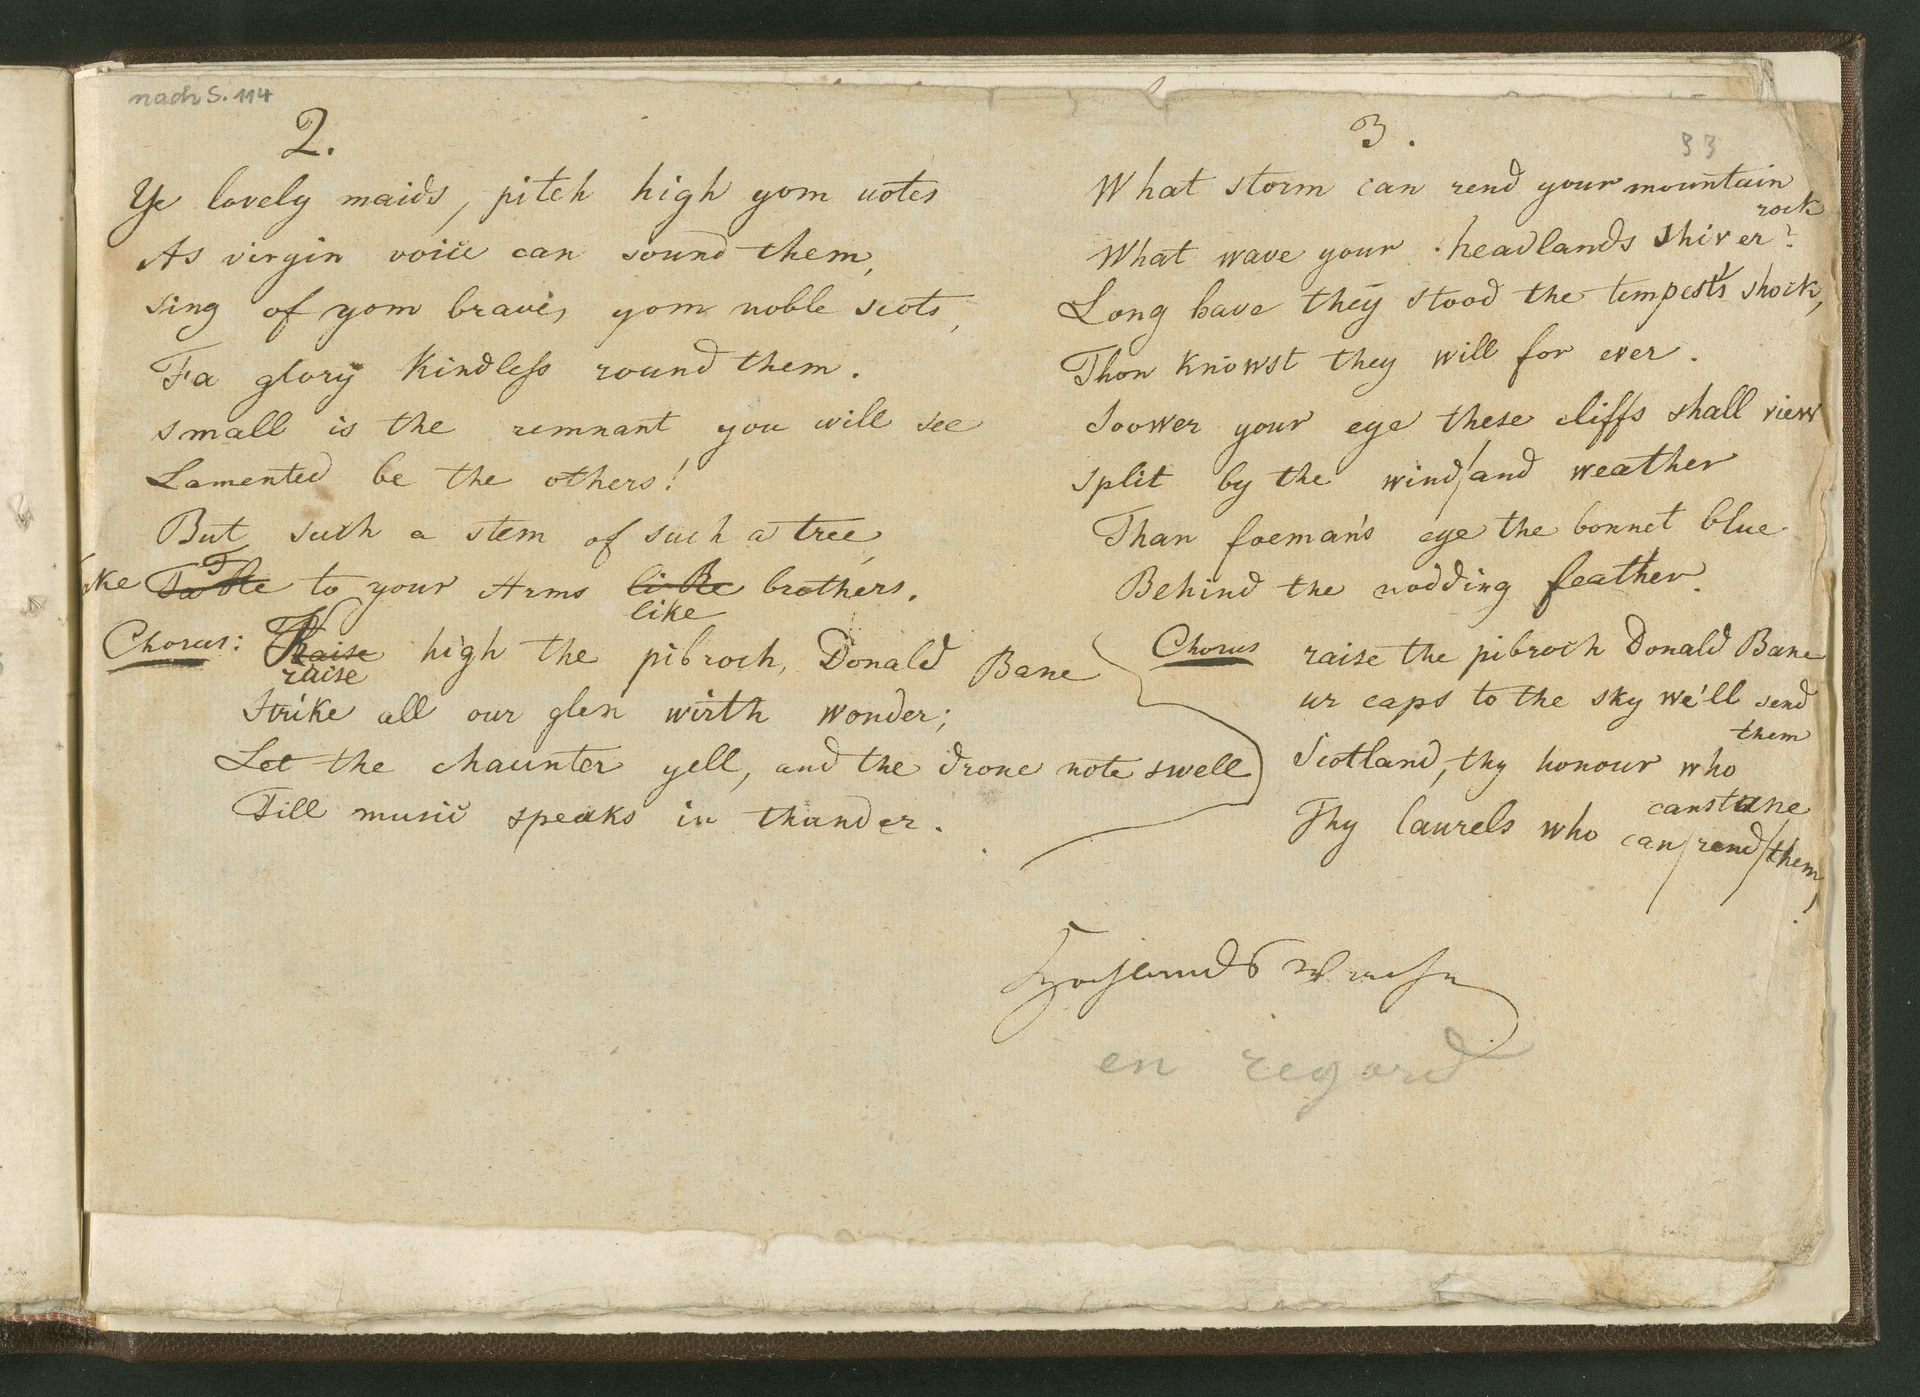 nach S. 114
2.
Ye lovely maids, pitch high yom notes
As virgin voice can sound them,
sing of yom brave, yom noble scots,
Fa glory Kindless round them.
small is the remnant you will see
Lamented be the others!
But such a stem of such a tree,
Take to your Arms like brothers.
Chorus: raise high the pibroch, Donald Bane
Strike all our glen wirth wonder;
Let the chaunter yell, and the drone note swell
Till music speaks in thunder.
3.
33
What storm can rend your mountain rock
What wave your headlands shiver?
Long have they stood the tempest's shock,
Thon knowst they will for ever.
Soower your eye these cliffs shall view
split by the wind/and weather
Than foeman's eye the bonnet blue
Behind the nodding feather.
Chorus raise the pibroch Donald Bane
ur caps to the sky we'll send them
Scotland, thy honour who canstane
Thy laurels who can/rend/them,
en regard